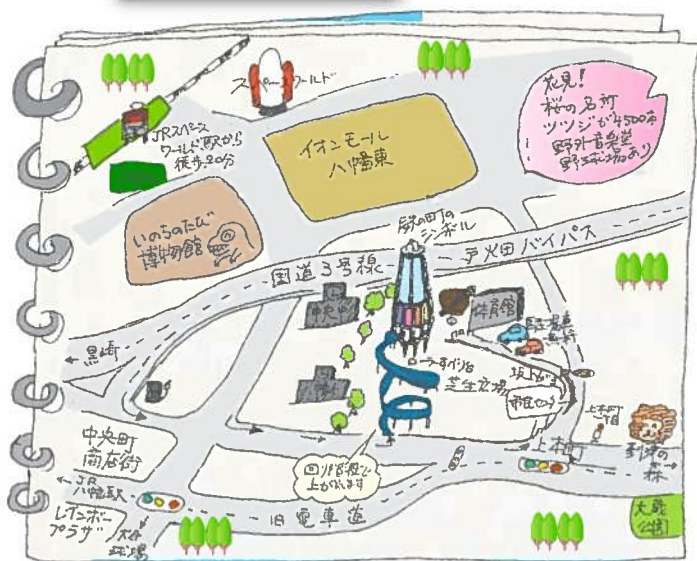 スペースワールド
JRスペース
ワールド駅から
徒歩20分
イオンモール
八幡東
花見!
桜の名所
ツツジが4500本
野外音楽堂
野球場あり
いのちのたび
博物館
鉄の町の
シンボル
国道3号線
戸畑バイパス
黒崎
中央中
体育館
駐車場
無料
すべり台
芝生広場
坂上がる
市民センター
上本町
到津の
森
中央町
商店街
回り階段で
上がれます
JR
八幡駅
レインボー
プラザ
大谷
球場
旧電車道
大蔵
公園